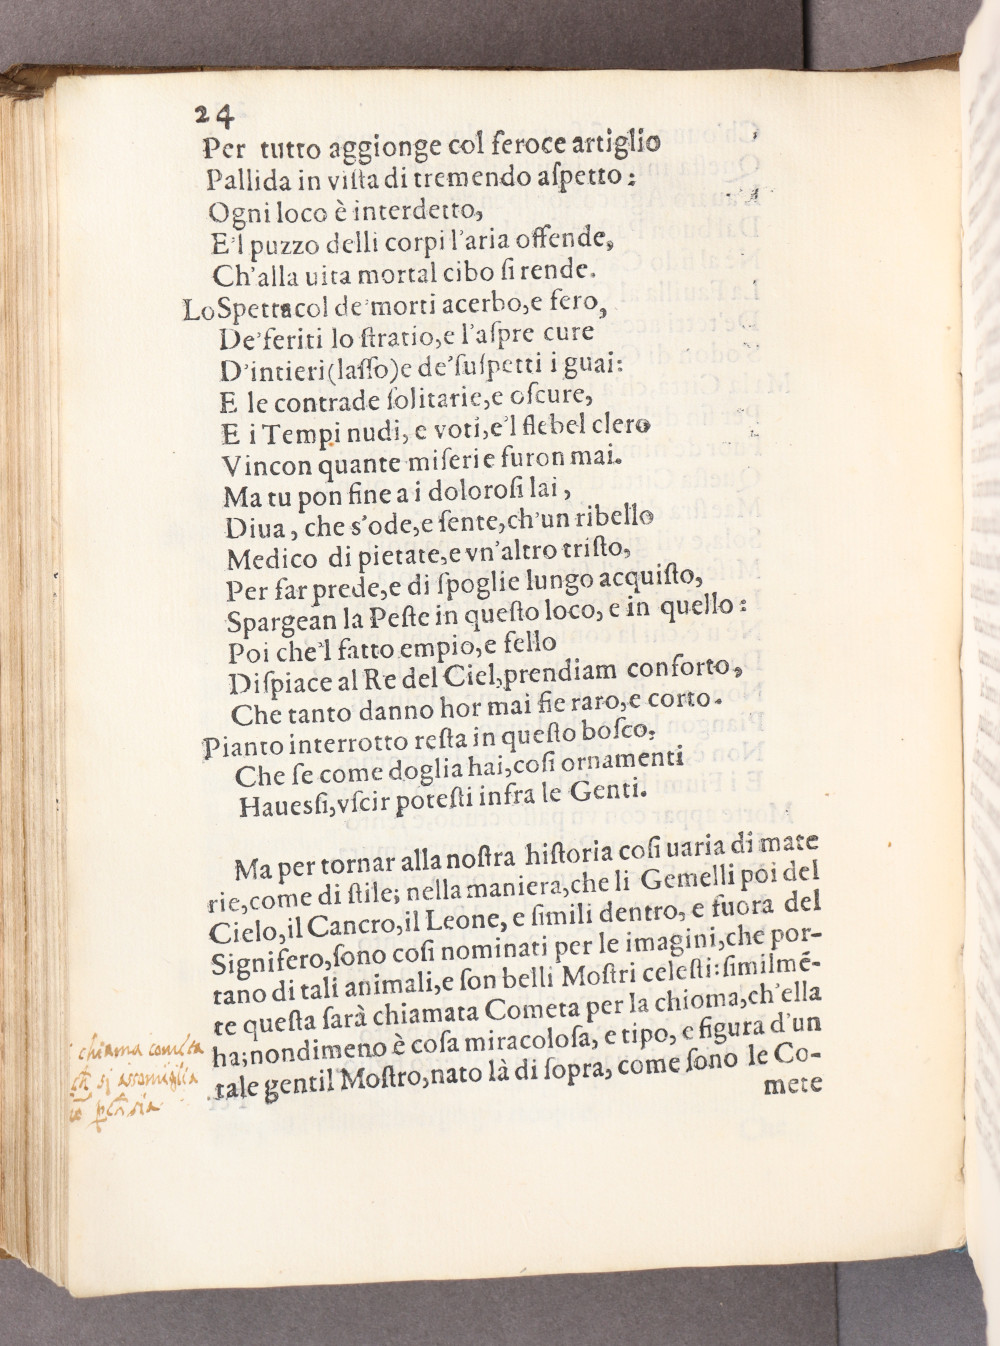 24
Per tutto aggionge col feroce artiglio
Pallida in viſta di tremendo aſpetto:
Ogni loco è interdetto,
E'l puzzo delli corpi l'aria offende,
Ch'alla uita mortal cibo ſi rende.
Lo Spettacol de'morti acerbo,e fero,
De'feriti lo ſtratio,e l'aſpre cure
D'intieri(laſſo)e de'ſuſpetti i guai:
E le contrade ſolitarie,e oſcure,
E i Tempi nudi, e voti,e'l flebel clero
Vincon quante miſerie furon mai.
Ma tu pon fine a i doloroſi lai,
Diua, che s'ode,e ſente,ch'un ribello
Medico di pietate,e vn'altro triſto,
Per far prede,e di ſpoglie lungo acquiſto,
Spargean la Peſte in queſto loco, e in quello:
Poi che'l fatto empio,e fello
Diſpiace al Re del Ciel,prendiam conforto,
Che tanto danno hor mai fie raro,e corto.
Pianto interrotto reſta in queſto boſco,
Che ſe come doglia hai,coſi ornamenti
Haueſsi,vſcir poteſti infra le Genti.
Ma per tornar alla noſtra hiſtoria coſi uaria di mate
rie,come di ſtile; nella maniera,che li Gemelli poi del
Cielo,il Cancro,il Leone, e ſimili dentro, e fuora del
Signifero,ſono coſi nominati per le imagini,che por-
tano di tali animali,e ſon belli Moſtri celeſti:ſimilmē-
te queſta ſarà chiamata Cometa per la chioma,ch'ella
ha;nondimeno è coſa miracoloſa, e tipo, e figura d'un
tale gentil Moſtro,nato là di ſopra, come ſono le Co-
mete
chiama cometa
ch̄ si assomiglia